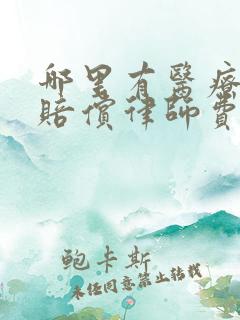 哪里有醫療
賠償律師費
鲍卡斯
未经同意禁止转载